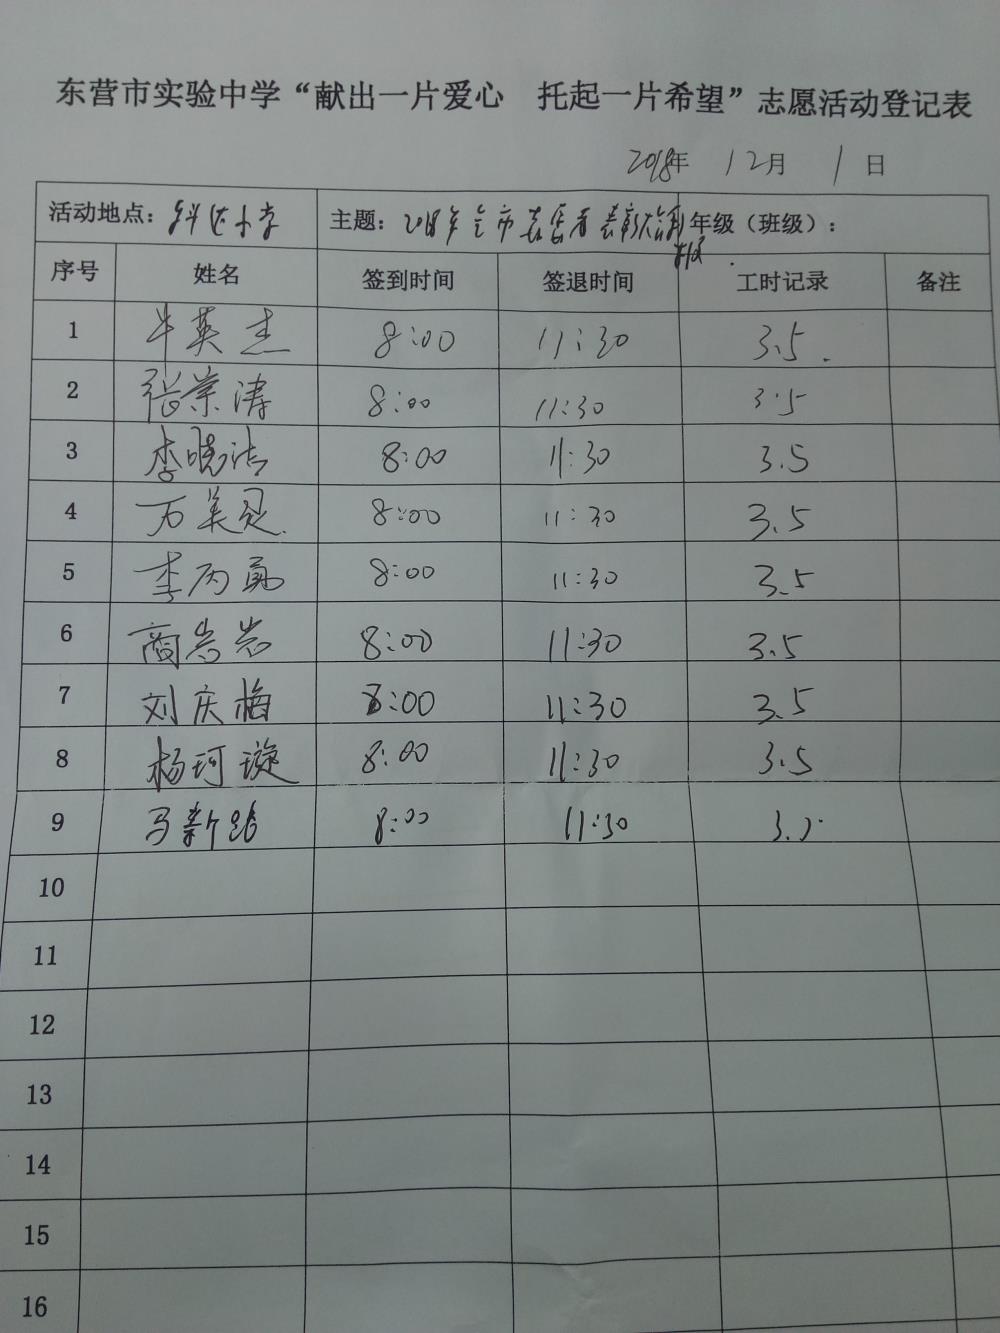 东营市实验中学“献出一片爱心 托起一片希望”志愿活动登记表
2018年 12月 1日
活动地点： 小学 主题：2018年全市 年级（班级）：
序号 姓名 签到时间 签退时间 工时记录 备注
1 牛英杰 8:00 11:30 3.5.
2 张崇涛 8:00 11:30 3.5
3 李晓洁 8:00 11:30 3.5
4 万美灵 8:00 11:30 3.5
5 李丙勇 8:00 11:30 3.5
6 商岩岩 8:00 11:30 3.5
7 刘庆梅 8:00 11:30 3.5
8 杨珂璇 8:00 11:30 3.5
9 马新 8:00 11:30 3.5
10
11
12
13
14
15
16